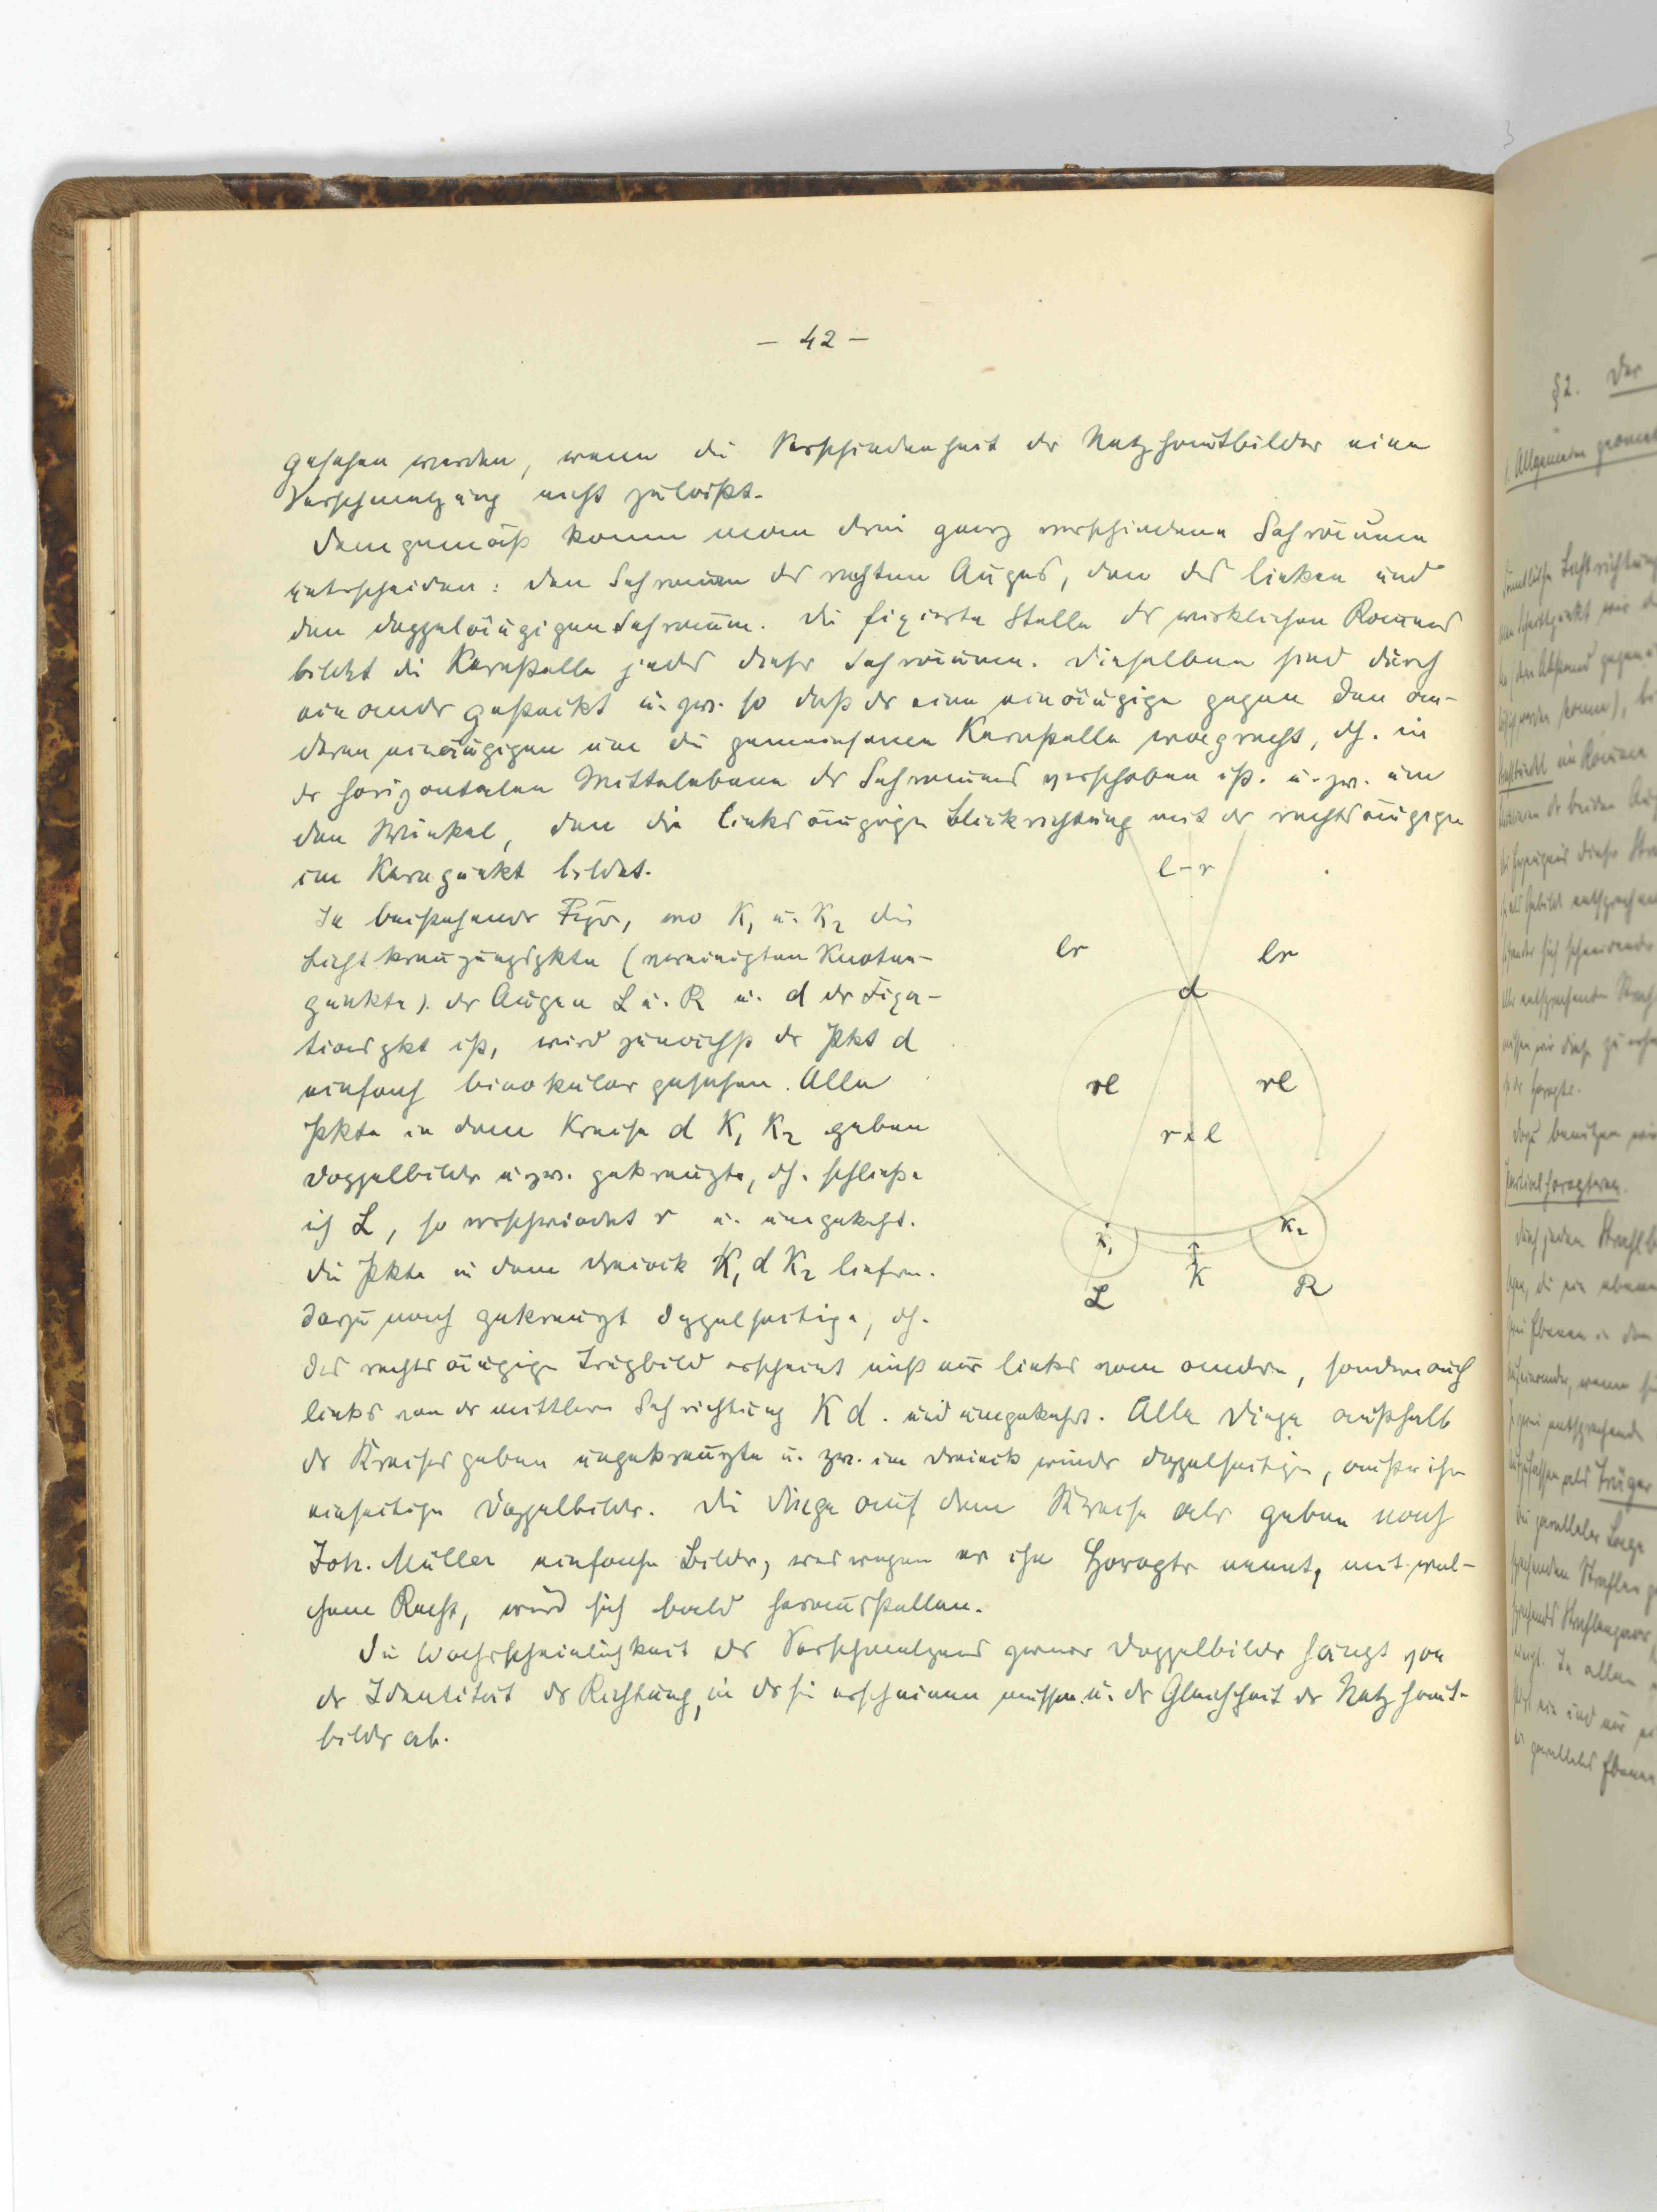 — 42 —
gesehen werden, wenn die Verschiedenheit der Netzhautbilder eine
Verschmelzung nicht zuläßt.
Demgemäß kann man drei ganz verschiedene Sehräume
unterscheiden: den Sehraum des rechten Auges, den des linken und
den doppeläugigen Sehraum. Die fixierte Stelle des wirklichen Raumes
bildet die Kernstelle jedes dieser Sehräume. Dieselben sind durch
einander gesteckt u. zw. so daß der eine einäugige gegen den an-
deren einäugigen um die gemeinsame Kernstelle waagrecht, dh. in
der horizontalen Mittelebene des Sehraumes verschoben ist. u. zw. um
den Winkel, den die linksäugige Blickrichtung mit der rechtsäugigen
im Kernpunkt bildet.
In beistehender Figur, wo K₁ u. K₂ die
Lichtkreuzungspkte (vereinigten Knoten-
punkte) der Augen L u. R u. d der Fixa-
tionspkt ist, wird zunächst der Pkt d
einfach binokular gesehen. Alle
Pkte in dem Kreise d K₁ K₂ geben
Doppelbilder u. zw. gekreuzte, dh. schließe
ich L, so verschwindet r u. umgekehrt.
Die Pkte in dem Dreieck K₁ d K₂ liefern
dazu noch gekreuzt doppelseitige, dh.
das rechtsäugige Trugbild erscheint nicht nur links vom andern, sondern auch
links von der mittleren Sehrichtung K d. und umgekehrt. Alle Dinge außerhalb
des Kreises geben ungekreuzte u. zw. im Dreieck wieder doppelseitige, außer ihm
einseitige Doppelbilder. Die Dinge auf dem Kreise aber geben nach
Joh. Müller einfache Bilder, weswegen er ihn Horopter nennt, mit wel-
chem Recht, wird sich bald herausstellen.
Die Wahrscheinlichkeit des Verschmelzens zweier Doppelbilder hängt von
der Identität der Richtung, in der sie erscheinen müssen u. der Gleichheit der Netzhaut-
bilder ab.
l-r
lr
lr
d
rl
rl
r l
K₁
K₂
K
L
R
§2. Der
1. Allgemeine